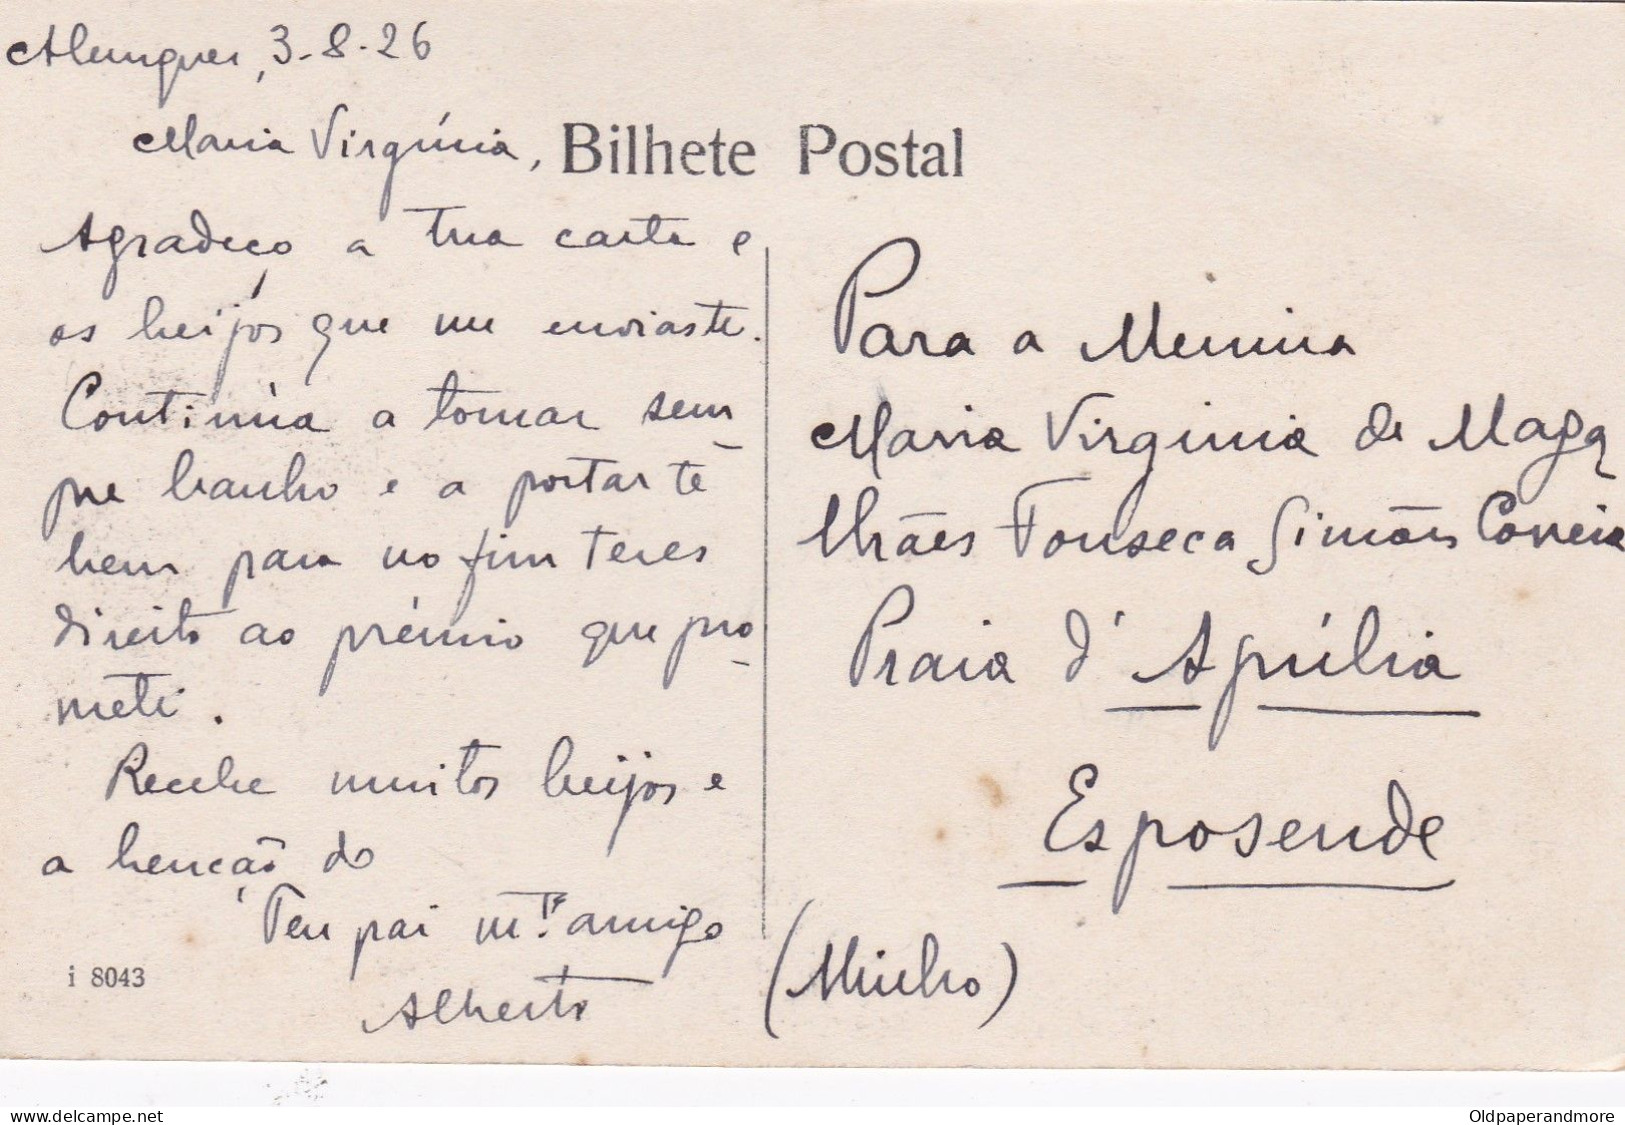 Alemquer, 3-8-26
Maria Virgínia,
Bilhete Postal
Agradeço a tua carta e
os beijos que me enviaste.
Continúa a tomar sem-
pre banho e a portar te
bem para no fim teres
direito ao prémio que pro-
meti.
Recebe muitos beijos e
a benção do
Teu pai m.to amigo
Alberto
i 8043
Para a Menina
Maria Virginia de Maga
lhães Fonseca Simões Correia
Praia d'Apúlia
Esposende
(Minho)
Oldpaperandmore
www.delcampe.net